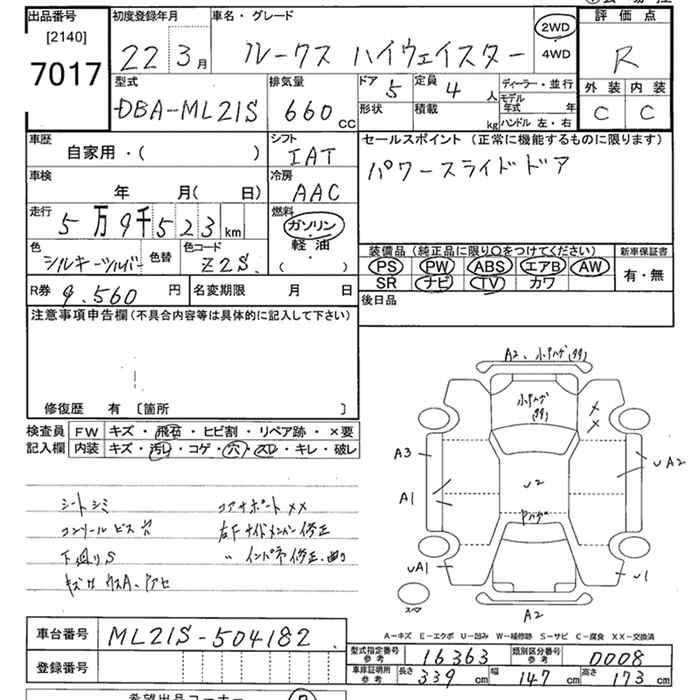 出品番号 初度登録年月 車名・グレード 評価点
[2140] 7017 22 3月 ルークス ハイウェイスター 2WD ・ 4WD R
型式 DBA-ML21S 排気量 660 CC ドア 5 定員 4 人 ディーラー・並行 外装 内装
形状 積載 kg モデル年式 年 C C
ハンドル 左・右
車歴 シフト セールスポイント (正常に機能するものに限ります)
自家用・( ) IAT パワースライドドア
車検 冷房
年 月( 日) AAC
走行 燃料
5万9千523 km ガソリン・軽油・( )
色 シルキーシルバー 色替 色コード Z2S
装備品 (純正品に限り〇をつけてください) 新車保証書
PS PW ABS エアB AW 有・無
SR ナビ TV カワ
R券 9.560 円 名変期限 月 日 後日品
注意事項申告欄(不具合内容等は具体的に記入して下さい)
修復歴 有 [箇所 ]
検査員 FW キズ・飛石・ヒビ割・リペア跡・×要
記入欄 内装 キズ・汚れ・コゲ・穴・スレ・キレ・破レ
シートシミ コアサポートXX
コンソールビス穴 右Fサイドメンバー修正
下廻りS 〃 インパネ修正、曲り
A2、小キハゲ
A3
A1
U2
UA2
UA1
U1
A2
スペア
A-キズ E-エクボ U-凹み W-補修跡 S-サビ C-腐食 XX-交換済
車台番号 ML21S-504182
登録番号
型式指定番号 参考 16363 類別区分番号 参考 0008
車庫証明用 参考 長さ 339 cm 幅 147 cm 高さ 173 cm
希望出品コーナー